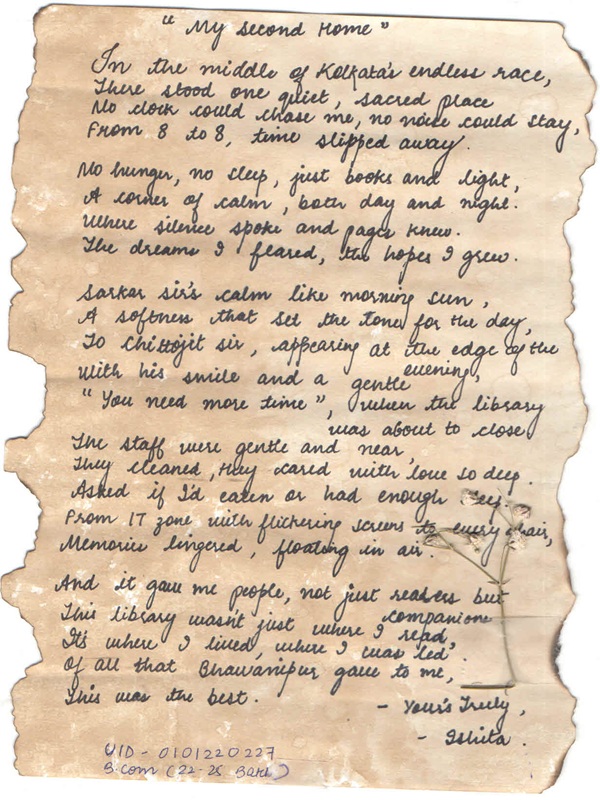 "My Second Home"
In the middle of Kolkata's endless race,
There stood one quiet, sacred place
No clock could chase me, no noise could stay,
From 8 to 8, time slipped away.
No hunger, no sleep, just books and light,
A corner of calm, both day and night.
Where silence spoke and pages knew.
The dreams I feared, the hopes I grew.
Sarkar sir's calm like morning sun,
A softness that set the tone for the day,
To Chittojit sir, appearing at the edge of the
evening,
With his smile and a gentle
"You need more time", when the library
was about to close
The staff were gentle and near,
They cleaned, they cared with love so deep.
Asked if I'd eaten or had enough sleep.
From 17 zone with flickering screens to every chair,
Memories lingered, floating in air.
And it gave me people, not just readers but
companions
This library wasn't just where I read,
It's where I lived, where I was led.
Of all that Bhawanipur gave to me,
This was the best.
- Your's Truly,
- Ishita.
UID - 0101220227
B.com (22-25 Batch)